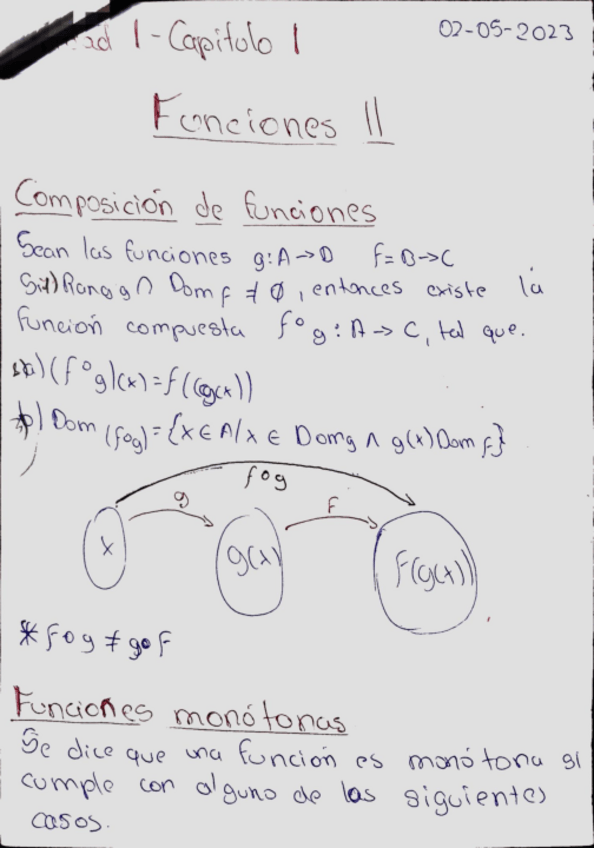 ad 1 - Capitulo 1
02-05-2023
Funciones II
Composición de funciones
Sean las funciones g:A→D f=B→C
Rang g ∩ Dom f ≠ ∅, entonces existe la
función compuesta f°g: A→C, tal que.
a) (f°g)(x)=f((g(x))
b) Dom (f∘g)={x∈A/x ∈ Dom g ∧ g(x) Dom f}
f∘g
g
f
x
g(x)
f(g(x))
* f∘g ≠ g∘f
Funciones monótonas
Se dice que una función es monótona si
cumple con alguno de los siguientes
casos.